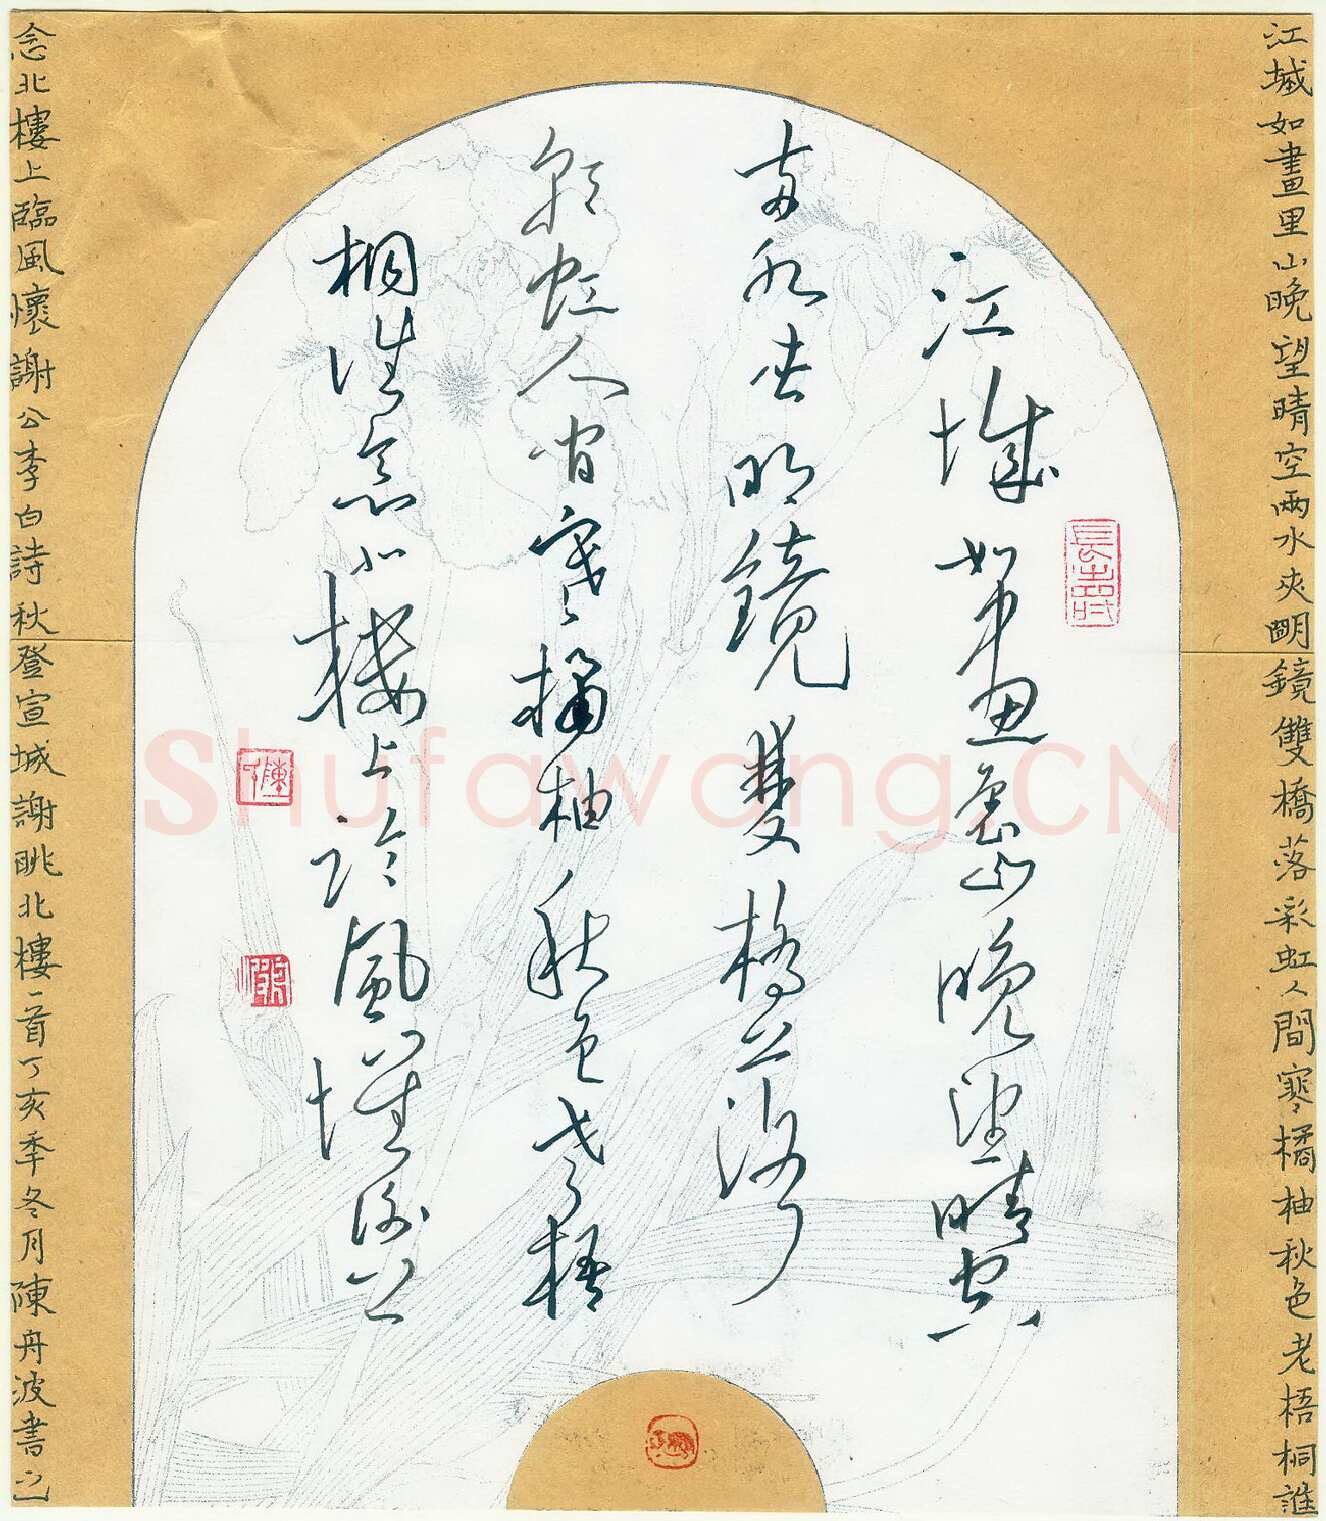 江城如畫里山晚望晴空兩水夾明鏡雙橋落彩虹人間寒橘柚秋色老梧桐誰
江城如畫裏山晚望晴空
兩水夾明鏡雙橋落
彩虹人間寒橘柚秋色老梧
桐誰念北樓上臨風懷謝公
念北樓上臨風懷謝公李白詩秋登宣城謝眺北樓一首丁亥秊冬月陳舟波書之
Shufawang.CN